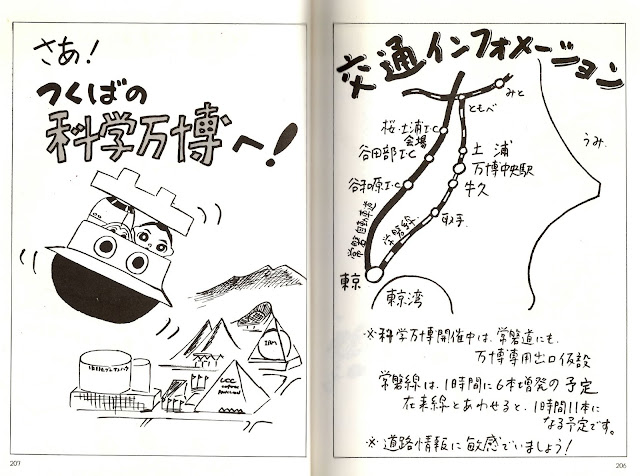 交通インフォメーション
みと
ともべ
うみ
桜・土浦I・C
会場
谷田部I・C
土浦
万博中央駅
谷和原I・C
牛久
取手
常磐自動車道
常磐線
東京
東京湾
※科学万博開催中は、常磐道にも、
万博専用出口仮設
常磐線は、1時間に6本増発の予定
在来線とあわせると、1時間11本に
なる予定です。
※道路情報に敏感でいましょう!
206
さあ!
つくばの
科学万博へ!
IBM
UCC
207